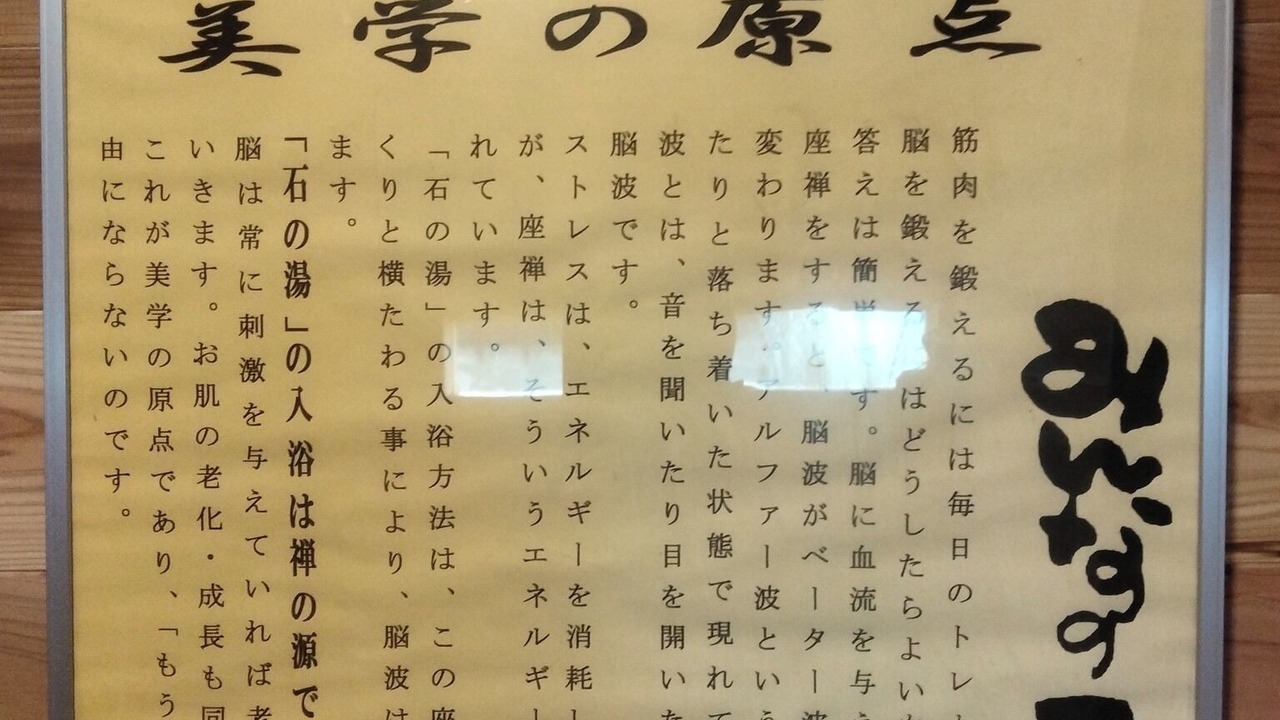 美学の原点
みんなの
筋肉を鍛えるには毎日のトレ
脳を鍛えるにはどうしたらよい
答えは簡単です。脳に血流を与
座禅をすると、脳波がベーター波
変わります。アルファー波という
たりと落ち着いた状態で現れて
波とは、音を聞いたり目を開いた
脳波です。
ストレスは、エネルギーを消耗し
が、座禅は、そういうエネルギー
れています。
「石の湯」の入浴方法は、この座
くりと横たわる事により、脳波は
ます。
「石の湯」の入浴は禅の源で
脳は常に刺激を与えていれば老
いきます。お肌の老化・成長も同
これが美学の原点であり、「もう
由にならないのです。